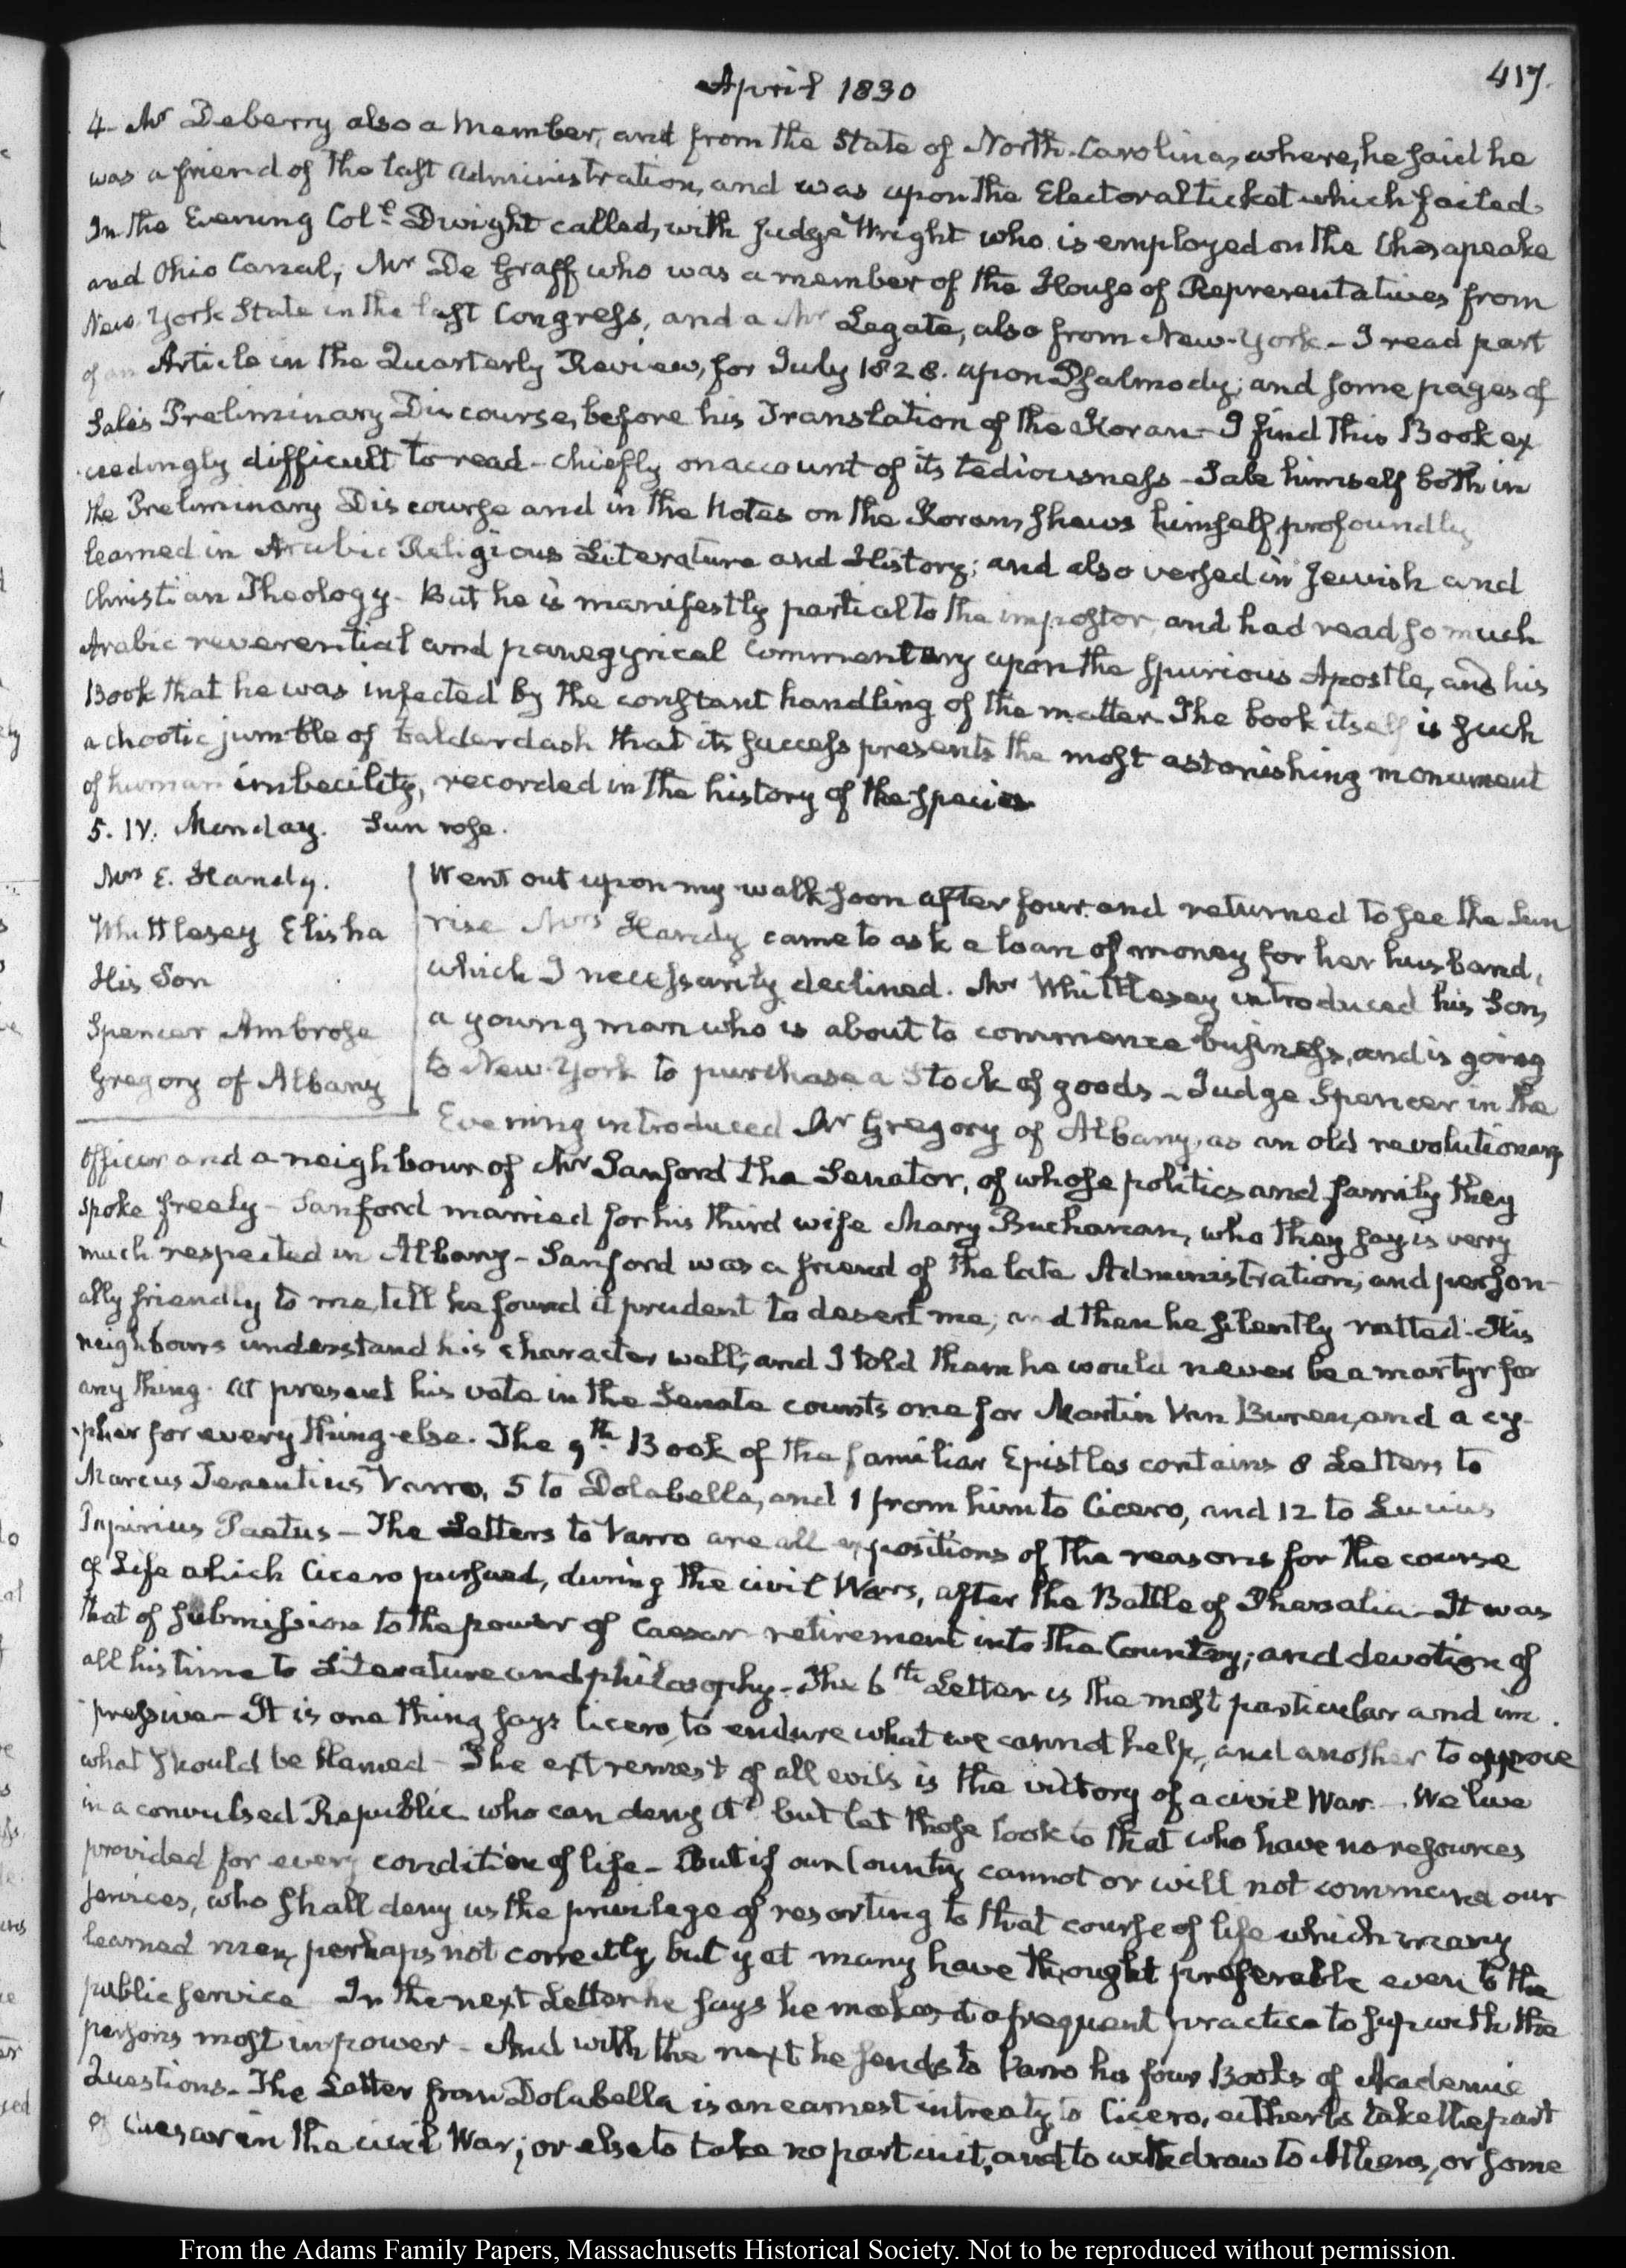 April 1830
417.
4. Mr Deberry also a member, and from the State of North-Carolina, where, he said he
was a friend of the last Administration, and was upon the Electoral ticket which failed.
In the Evening Coll. Dwight called, with Judge Wright who is employed on the Chesapeake
and Ohio Canal; Mr De Graff who was a member of the House of Representatives from
New York State in the last Congress, and a Mr Legate, also from New-York - I read part
of an Article in the Quarterly Review, for July 1828. upon Psalmody; and some pages of
Sale's Preliminary Discourse, before his Translation of the Koran - I find this Book ex
ceedingly difficult to read - chiefly on account of its tediousness - Sale himself both in
the Preliminary Discourse and in the Notes on the Koran, shews himself profoundly
learned in Arabic Religious Literature and History; and also versed in Jewish and
Christian Theology - But he is manifestly partial to the impostor, and had read so much
Arabic reverential and panegyrical commentary upon the spurious Apostle, and his
Book that he was infected by the constant handling of the matter. The book itself is such
a chaotic jumble of balderdash that its success presents the most astonishing monument
of human imbecility, recorded in the history of the species
5. IV. Monday. Sun rose.
Mrs E. Handy.
Whittlesey Elisha
His Son
Spencer Ambrose
Gregory of Albany
Went out upon my walk soon after four and returned to see the Sun
rise Mrs Handy came to ask a loan of money for her husband,
which I necessarily declined. Mr Whittlesey introduced his Son,
a young man who is about to commence business, and is going
to New-York to purchase a Stock of goods - Judge Spencer in the
Evening introduced Mr Gregory of Albany, as an old revolutionary
Officer and a neighbour of Mr Sanford the Senator, of whose politics and family they
spoke freely - Sanford married for his third wife Mary Buchanan, who they say is very
much respected in Albany - Sanford was a friend of the late Administration, and person-
ally friendly to me, till he found it prudent to desert me, and then he silently ratted. His
neighbours understand his character well; and I told them he would never be a martyr for
any thing. At present his vote in the Senate counts one for Martin Van Buren, and a cy-
pher for every thing else. The 9th. Book of the familiar Epistles contains 8 Letters to
Marcus Terentius Varro, 5 to Dolabella, and 1 from him to Cicero, and 12 to Lucius
Papirius Paetus - The Letters to Varro are all expositions of the reasons for the course
of Life which Cicero pursued, during the civil Wars, after the Battle of Pharsalia - It was
that of submission to the power of Caesar - retirement into the Country; and devotion of
all his time to Literature and philosophy - The 6th Letter is the most particular and im
pressive - It is one thing says Cicero, to endure what we cannot help, and another to approve
what should be blamed - The extremest of all evils is the victory of a civil War. - We live
in a convulsed Republic who can deny it? but let those look to that who have no resources
provided for every condition of life - But if our Country cannot or will not command our
services, who shall deny us the privilege of resorting to that course of life which many
learned men, perhaps not correctly, but yet many have thought preferable even to the
public service In the next Letter he says he makes it a frequent practice to sup with the
persons most in power - And with the next he sends to Varro his four Books of Academic
Questions - The Letter from Dolabella is an earnest intreaty to Cicero, either to take the part
of Caesar in the civil War; or else to take no part in it, and to withdraw to Athens, or some
From the Adams Family Papers, Massachusetts Historical Society. Not to be reproduced without permission.